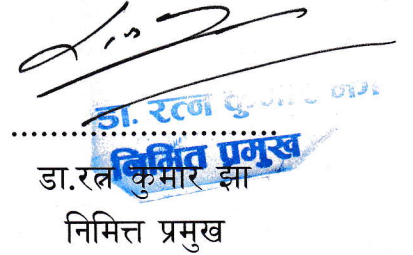 डा. रत्न कुमार
निमित्त प्रमुख
डा.रत्न कुमार झा
निमित्त प्रमुख